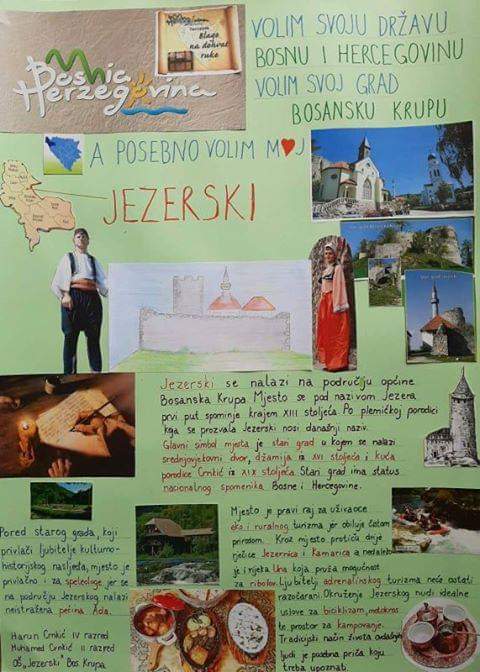 Bosnia
Herzegovina
Blago
na dohvat
ruke
VOLIM SVOJU DRŽAVU
BOSNU I HERCEGOVINU
VOLIM SVOJ GRAD
BOSANSKU KRUPU
A POSEBNO VOLIM M♥J
JEZERSKI
Jezerski se nalazi na području općine
Bosanska Krupa. Mjesto se pod nazivom Jezera
prvi put spominje krajem XIII stoljeća Po plemičkoj porodici
koja se prozvala Jezerski nosi današnji naziv.
Glavni simbol mjesta je stari grad u kojem se nalazi
srednjovjekovni dvor, džamija iz XVI stoljeća i kuća
porodice Crnkić iz XIX stoljeća Stari grad ima status
nacionalnog spomenika Bosne i Hercegovine.
Pored starog grada, koji
privlači ljubitelje kulturno-
historijskog nasljeđa, mjesto je
privlačno i za speleologe jer se
na području Jezerskog nalazi
neistražena pećina Ada.
Harun Crnkić IV razred
Muhamed Crnkić II razred
OŠ „Jezerski" Bos. Krupa
Mjesto je pravi raj za uživaoce
eko i ruralnog turizma jer obiluje čistom
prirodom. Kroz mjesto protiču dvije
rječice Jezernica i Kamarica a nedaleko
je i rijeka Una koja pruža mogućnost
za ribolov. Ljubitelji adrenalinskog turizma neće ostati
razočarani. Okruženje Jezerskog nudi idealne
uslove za biciklizam, motokros
te prostor za kampovanje.
Tradicijski način života ovdašnjih
ljudi je posebna priča koju
treba upoznati.